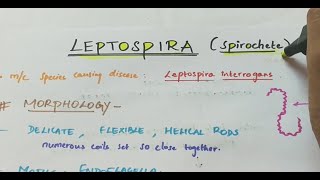 LEPTOSPIRA (spirochete)
m/c species causing disease : Leptospira interrogans.
# MORPHOLOGY -
- DELICATE, FLEXIBLE, HELICAL RODS
numerous coils set so close together.